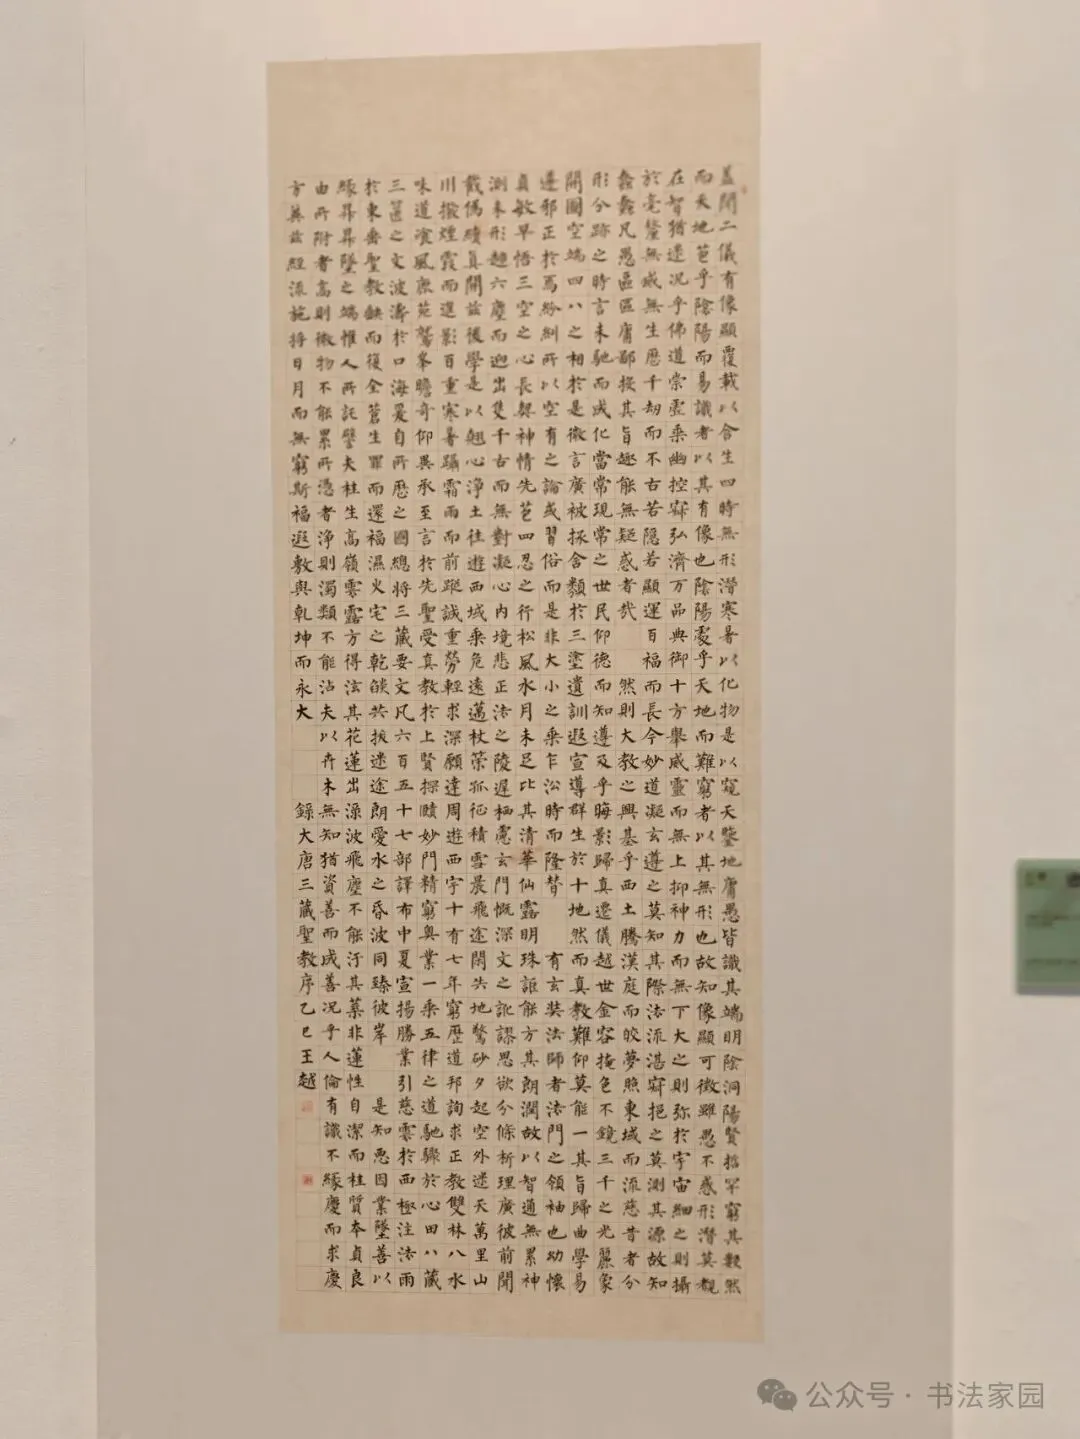 蓋聞二儀有像顯覆載以含生四時無形潛寒暑以化物是以窺天鑒地庸愚皆識其端明陰洞陽賢哲罕窮其數然
而天地苞乎陰陽而易識者以其有像也陰陽處乎天地而難窮者以其無形也故知像顯可徵雖愚不惑形潛莫覩
在智猶迷況乎佛道崇虛乘幽控寂弘濟万品典御十方舉威靈而無上抑神力而無下大之則弥於宇宙細之則攝
於毫釐無滅無生歷千劫而不古若隱若顯運百福而長今妙道凝玄遵之莫知其際法流湛寂挹之莫測其源故知
蠢蠢凡愚區區庸鄙投其旨趣能無疑惑者哉 然則大教之興基乎西土騰漢庭而皎夢照東域而流慈昔者分
形分跡之時言未馳而成化當常現常之世民仰德而知遵及乎晦影歸真遷儀越世金容掩色不鏡三千之光麗象
開圖空端四八之相於是微言廣被拯含類於三塗遺訓遐宣導群生於十地然而真教難仰莫能一其旨歸曲學易
遵邪正於焉紛糾所以空有之論或習俗而是非大小之乘乍沿時而隆替 有玄奘法師者法門之領袖也幼懷
貞敏早悟三空之心長契神情先苞四忍之行松風水月未足比其清華仙露明珠詎能方其朗潤故以智通無累神
測未形超六塵而迥出隻千古而無對凝心內境悲正法之陵遲栖慮玄門慨深文之訛謬思欲分條析理廣彼前聞
截偽續真開茲後學是以翹心淨土往遊西域乘危遠邁杖策孤征積雪晨飛途閒失地驚砂夕起空外迷天萬里山
川撥煙霞而進影百重寒暑躡霜雨而前蹤誠重勞輕求深願達周遊西宇十有七年窮歷道邦詢求正教雙林八水
味道湌風鹿苑鷲峯瞻奇仰異承至言於先聖受真教於上賢探賾妙門精窮奧業一乘五律之道馳驟於心田八藏
三篋之文波濤於口海爰自所歷之國總將三藏要文凡六百五十七部譯布中夏宣揚勝業引慈雲於西極注法雨
於東垂聖教缺而復全蒼生罪而還福濕火宅之乾燄共拔迷途朗愛水之昏波同臻彼岸 是知惡因業墜善以
緣昇昇墜之端惟人所託譬夫桂生高嶺雲露方得泫其花蓮出淥波飛塵不能汙其葉非蓮性自潔而桂質本貞良
由所附者高則微物不能累所憑者淨則濁類不能沾夫以卉木無知猶資善而成善況乎人倫有識不緣慶而求慶
方冀茲經流施將日月而無窮斯福遐敷與乾坤而永大 錄大唐三藏聖教序乙巳王越
公众号·书法家园